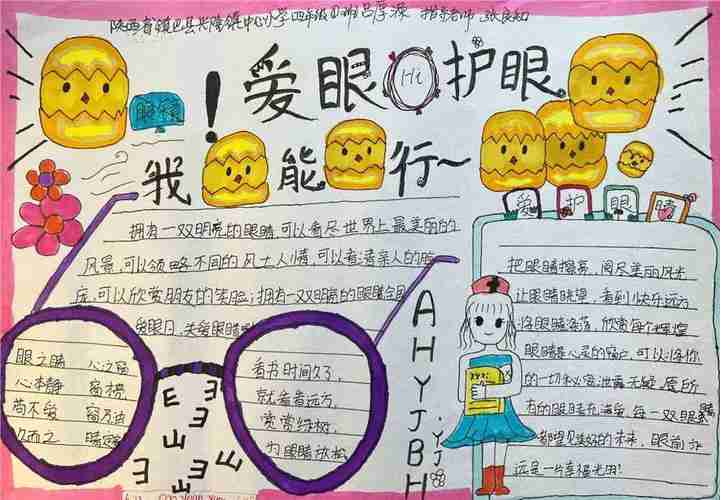 陕西省镇巴县兴隆镇中心小学四年级 班吕 指导老师 张良知
爱眼 Hi 护眼
眼镜
!
我 能 行~
拥有一双明亮的眼睛,可以看尽世界上最美丽的
风景,可以领略不同的风土人情,可以看清亲人的脸
庞,可以欣赏朋友的笑脸;拥有一双明亮的眼睛
爱眼日,关爱眼睛
眼之睛
心本静
苟不爱
久而之
心之窗
窗
窗
睛
看书时间久了,
就看看远方,
赏赏绿树,
为眼睛放松
E
E
E
E
E
E
E
E
A
H
Y
J
B
H
Y
J
爱 护 眼 睛
把眼睛擦亮,阅尽美丽风光
让眼睛眺望,看到快乐远方
将眼睛 ,欣赏每个辉煌
眼睛是心灵的窗户,可以将你
的一切秘密泄露无疑,愿所
有的眼睛 ,每一双眼
都望见美好的未来,眼前
远是一片幸福光明!